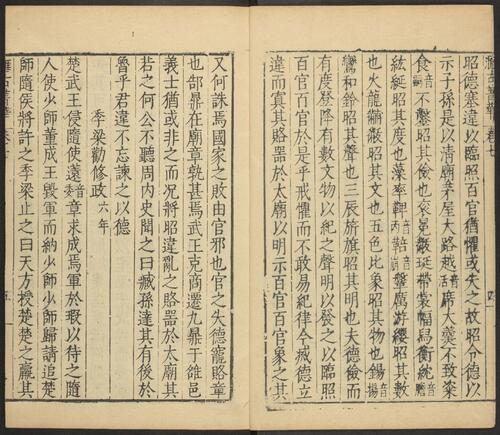 昭德塞違以臨照百官猶懼或失之故昭令德以
示子孫是以清廟茅屋大路越音活席大羹不致粢
食音嗣不鑿昭其儉也袞冕黻珽帶裳幅舄衡紞音
紘綖昭其度也藻率鞞鞶厲游纓昭其數
也火龍黼黻昭其文也五色比象昭其物也鍚音揚
鸞和鈴昭其聲也三辰旂旗昭其明也夫德儉而
有度登降有數文物以紀之聲明以發之以臨照
百官百官於是乎戒懼而不敢易紀律今滅德立
違而寘其賂器於太廟以明示百官百官象之其
又何誅焉國家之敗由官邪也官之失德寵賂章
也郜鼎在廟章孰甚焉武王克商遷九鼎于雒邑
義士猶或非之而况將昭違亂之賂器於太廟其
若之何公不聽周内史聞之曰臧孫達其有後於
魯乎君違不忘諫之以德
季梁勸修政六年
楚武王侵隨使薳音委章求成焉軍於瑕以待之隨
人使少師董成王毀軍而納少師少師歸請追楚
師隨侯將許之季梁止之曰天方授楚楚之羸其